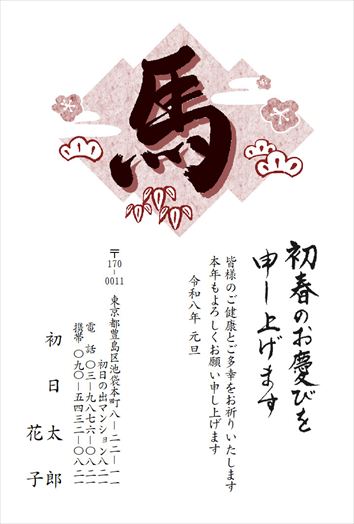 馬
初春のお慶びを
申し上げます
皆様のご健康とご多幸をお祈りいたします
本年もよろしくお願い申し上げます
令和八年 元旦
〒170-0011
東京都豊島区池袋本町八-二二-一一
初日の出マンション八二一
電話 〇三-九八七六-〇八二一
携帯 〇九〇-五四三二-〇八二一
初日 太郎
花子